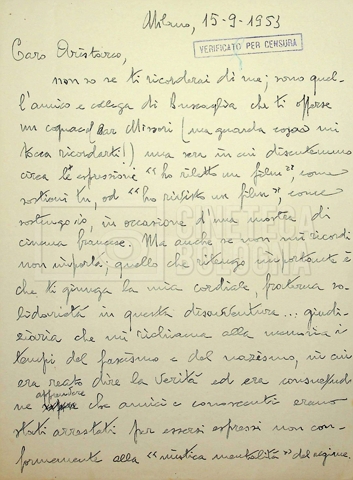 Milano, 15-9-1953
VERIFICATO PER CENSURA
Caro Aristarco,
non so se ti ricorderai di me; sono quel-
l'amico e collega di Buscaglia che ti offerse
un cognac al Bar Missori (ma guarda cosa mi
tocca ricordarti!) una sera in cui discutemmo
circa l'espressione "ho riletto un film", come
sostieni tu, od "ho rivisto un film", come
sostengo io, in occasione d'una mostra di
cinema francese. Ma anche se non mi ricordi
non importa; quello che ritengo importante è
che ti giunga la mia cordiale, fraterna so-
lidarietà in questa disavventura... giudi-
ziaria che mi richiama alla memoria i
tempi del fascismo e del nazismo, in cui
era reato dire la verità ed era consuetudi-
ne apprendere che amici e conoscenti erano
stati arrestati per essersi espressi non con-
formemente alla "mistica mentalità" del regime.
CINETECA
BOLOGNA